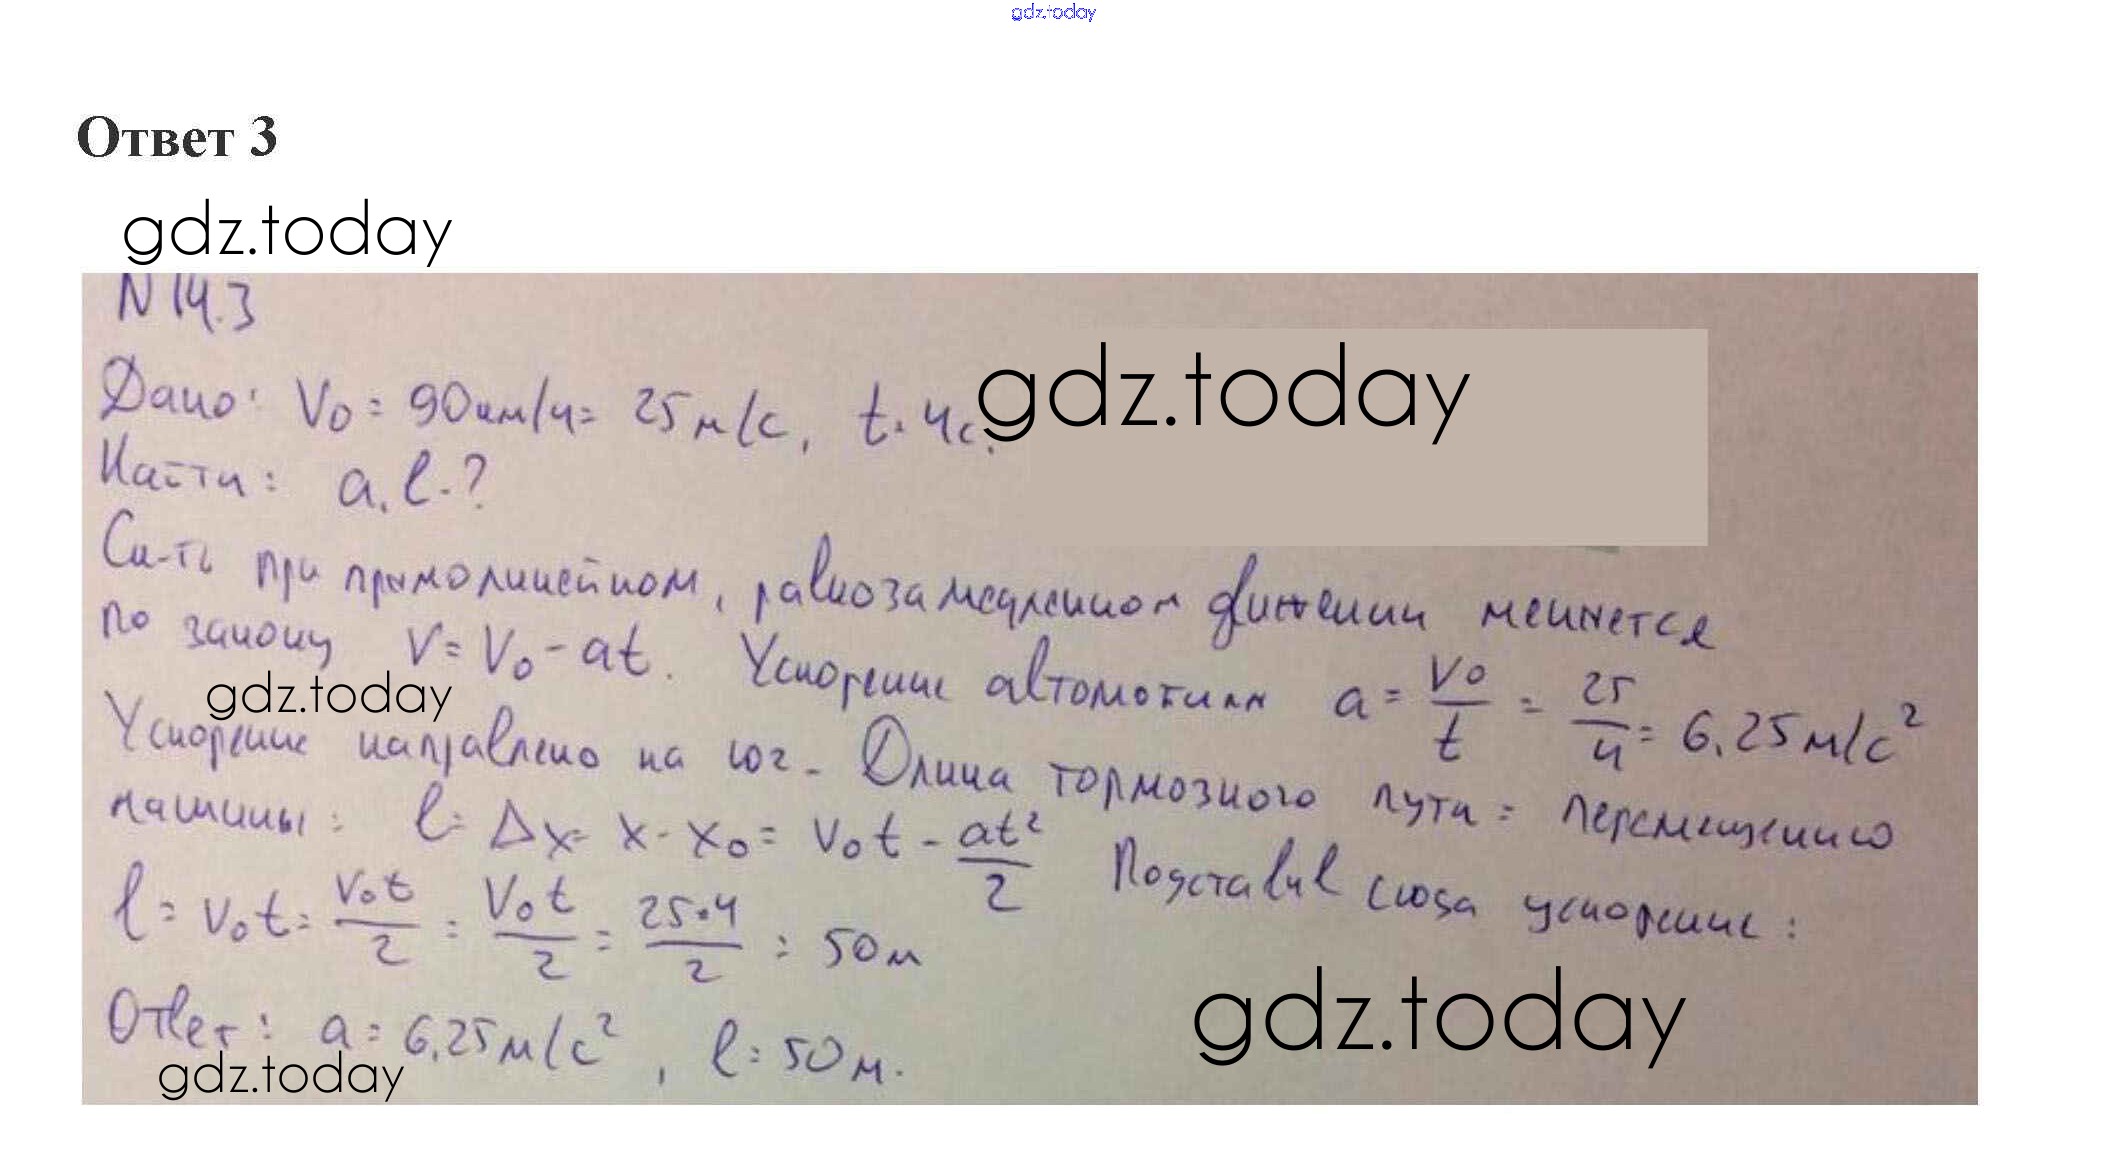 gdz.today
Ответ 3
gdz.today
N 14.3
Дано: V₀ = 90 км/ч = 25 м/с, t = 4с.
gdz.today
Найти: a, l - ?
Ск-ть при прямолинейном, равнозамедленном движении меняется
по закону V = V₀ - at. Ускорение автомобиля a = V₀/t = 25/4 = 6,25 м/с²
gdz.today
Ускорение направлено на юг. Длина тормозного пути = перемещению
машины: l = Δx = x - x₀ = V₀t - at²/2 Подставив сюда ускорение:
l = V₀t = V₀t/2 = V₀t/2 = 25·4/2 = 50 м
gdz.today
Ответ: a = 6,25 м/с², l = 50 м.
gdz.today